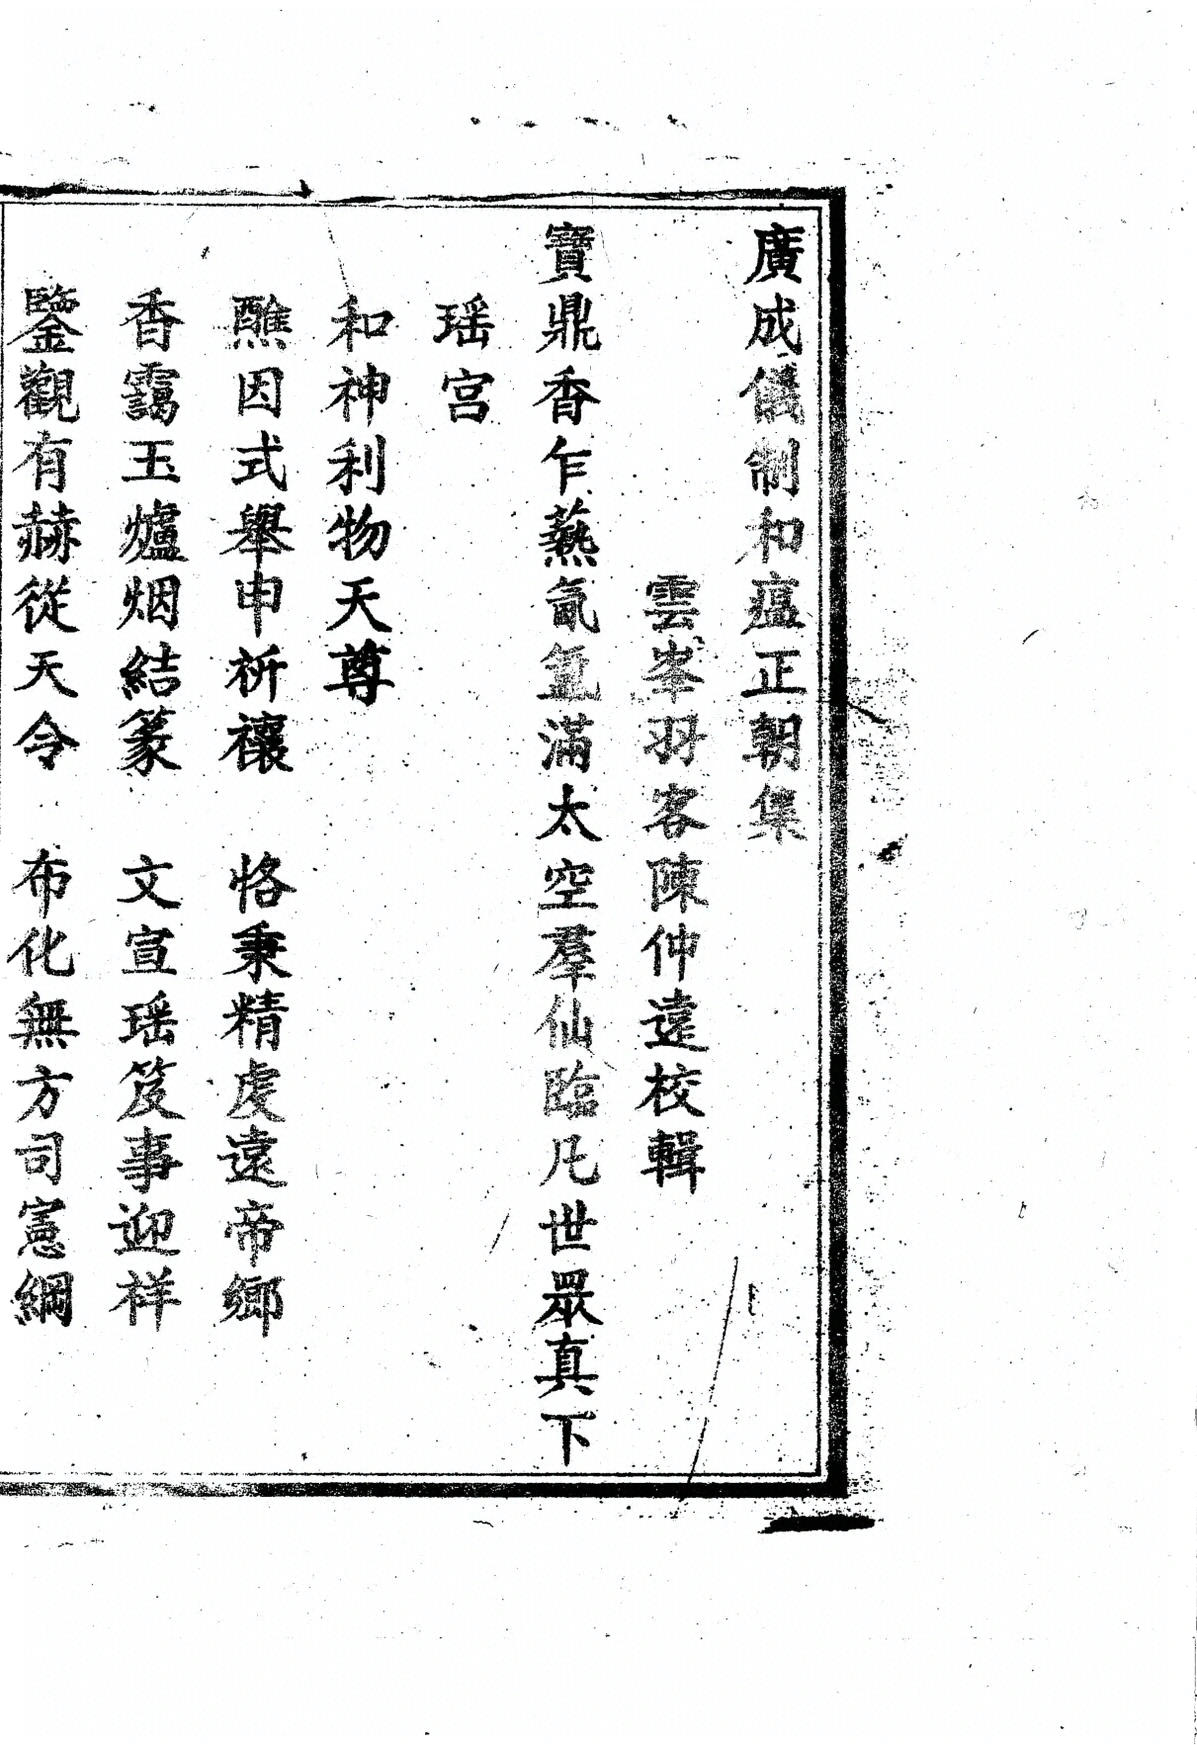 廣成儀制和瘟正朝集
雲峯羽客陳仲遠校輯
寶鼎香乍爇氤氳滿太空羣仙臨凡世眾真下
瑶宫
和神利物天尊
醮因式舉申祈禳 恪秉精虔遠帝鄉
香靄玉爐烟結篆 文宣瑶笈事迎祥
鑒觀有赫從天令 布化無方司憲綱